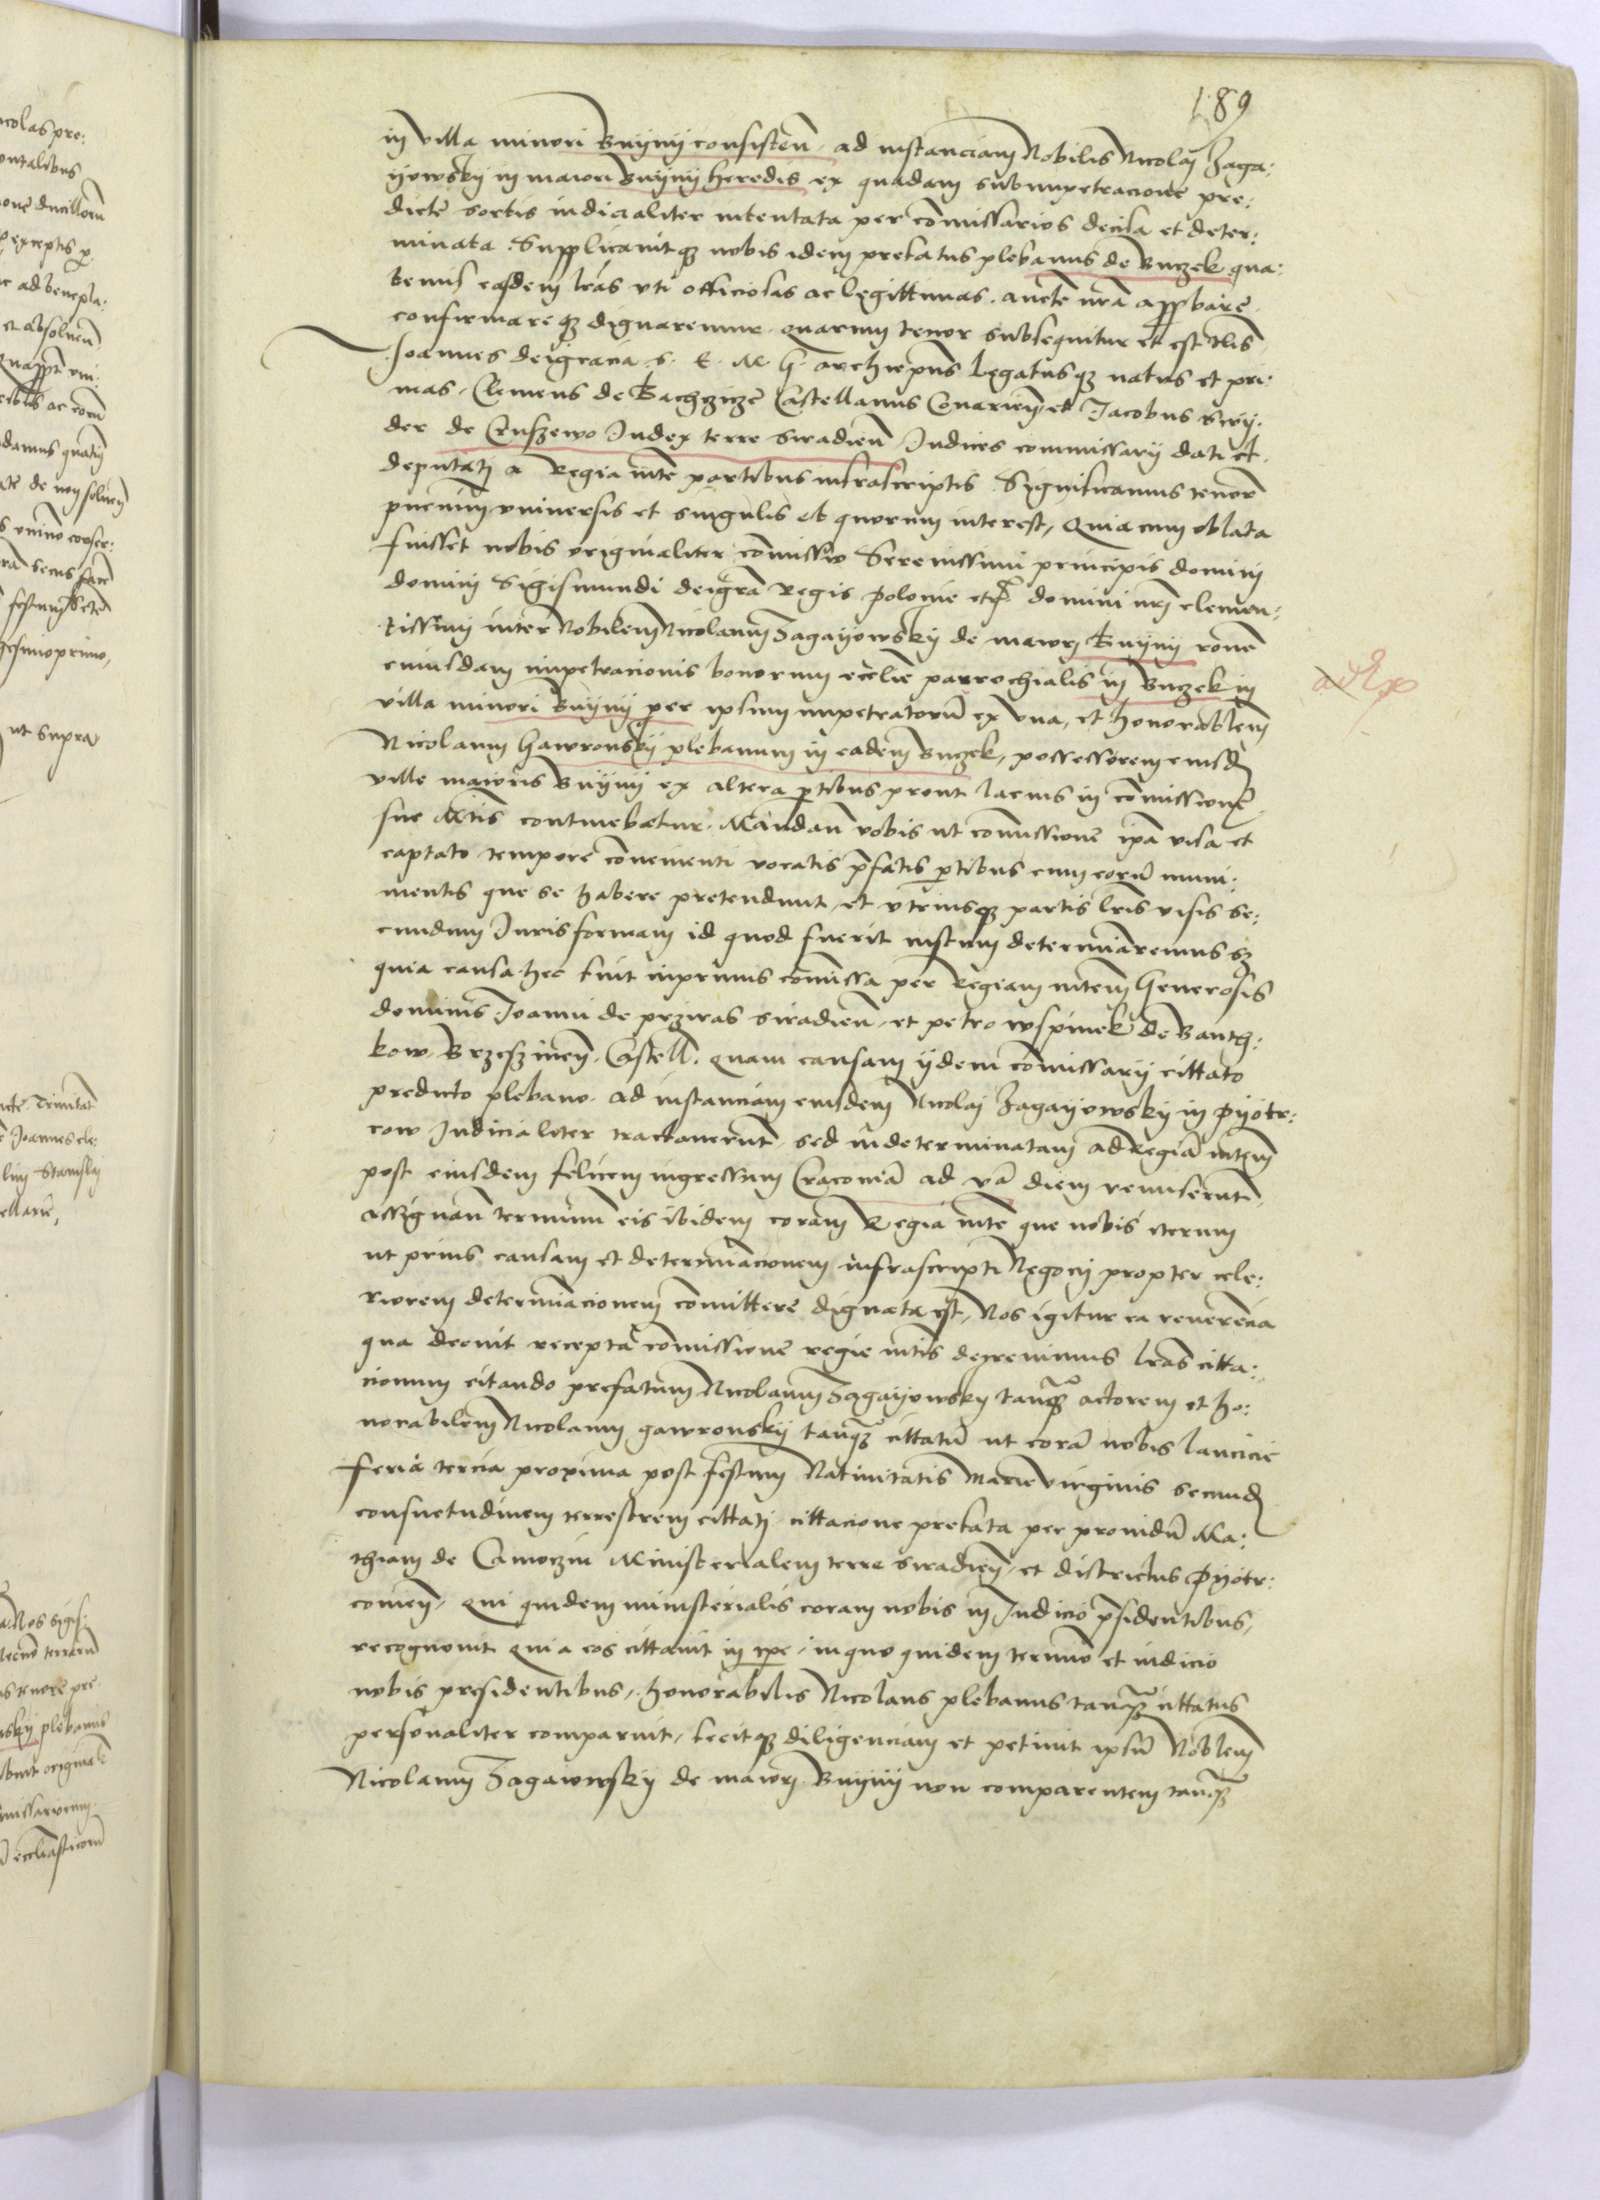 189
in villa minori Buyny consisten. ad instanciam Nobilis Nicolaj Zaga:
yowsky in maiori Buyny heredis ex quadam subimpetracione pre:
dicte sortis iudicialiter intentata per comissarios decisa et deter:
minata. Supplicauitq3 nobis idem prefatus plebanus de Buczek qua:
tenus easdem lras vti officiosas ac legittimas. aucte nra appbare
confirmareq3 dignaremur. quarum tenor subsequitur et est tlis
Joannes dei gracia s. E. M. G. archiepus legatusq3 natus et pri:
mas. Clemens de Castellanus Conarien et Jacobus
der de Cruszewo Judex terre siradien Judices commissarij dati et
deputatj a Regia mte partibus infrascriptis. Significamus tenore
pntium vniuersis et singulis ob quorum interest, Quia cum oblata
fuisset nobis originaliter comissio Serenissimi principis dominj
domini Sigismundi dei gra Regis polonie etc domini nrj clemen:
tissimi inter Nobilem Nicolaum Zagayowsky de maiorj Buyny rone
cuiusdam impetracionis bonorum ecclie parrochialis in Buczek in
villa minori Buyny per ipsum impetratoru ex vna, et honorablem
Nicolaum Gawronsky plebanum in eadem Buczek, possessorem eiusd
ville maioris Buyny ex altera ptibus prout lacius in comissione
sue Mtis continebatur. Mandan vobis ut comissione ipa visa et
captato tempore conuenienti vocatis pfatis ptibus cum coru muni:
mentis que se habere pretendunt et vtriusq3 partis lris visis se:
cundum Juris formam id quod fuerit iustum determinaremus sz
quia causa hec fuit inprimis comissa per Regiam mtem Generosis
dominis Joanni de siradien. et petro wspinek de Banth:
kow Brzeszinen. Castell. quam causam ijdem comissarij cittato
predicto plebano ad instanciam eiusdem Nicolaj Zagayowsky in pyotr:
cow Judicialiter tractauerunt. sed indeterminatam ad Regia mtem
post eiusdem felicem ingressum Cracouia ad diem remiserunt.
assignan terminum eis ibidem coram Regia mte que nobis iterum
ut prius causam et determinacionem infrascripti Negocij propter cele:
riorem determinacionem comittere dignata est, Nos igitur ea reuerencia
qua decuit recepta comissione regie mtis decreuimus lras citta:
cionum citando prefatum Nicolaum Zagayowsky tanq3 actorem et ho:
norabilem Nicolaum gawronsky tanq3 cittatu ut cora nobis lancicie
feria tercia proxima post festum Natiuitatis Marie virginis secund
consuetudinem terrestrem cittatj cittacione prefata per prouidu Ma:
thiam de Camoczin Ministerialem terre siradien et districtus Pyotr:
couien. qui quidem ministerialis coram nobis in Judicio psidentibus,
recognouit quia eos cittauit in rpe. in quo quidem termino et iudicio
nobis presidentibus. honorabilis Nicolaus plebanus tanq3 cittatus
personaliter comparuit, fecitq3 diligenciam et petiuit ipsu Noblem
Nicolaum Zagaiowsky de maiorj Buyny non comparentem tanq3